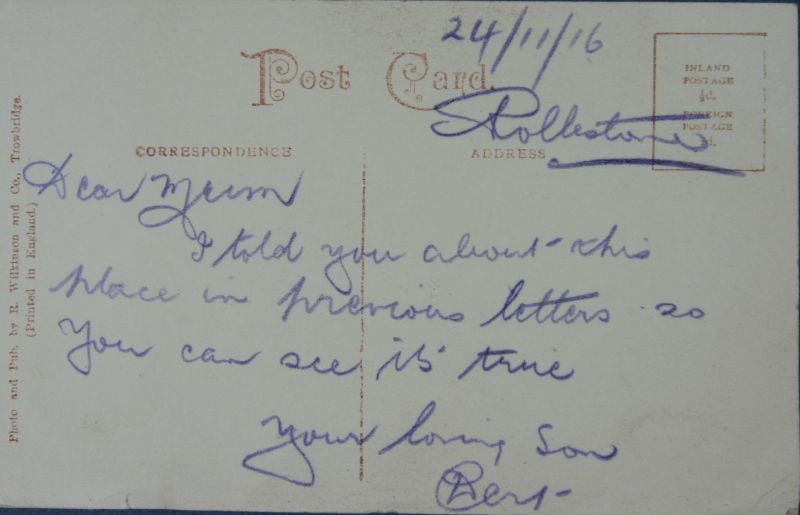 24/11/16
Post Card.
Rollestone
INLAND
POSTAGE
½d.
FOREIGN
POSTAGE
d.
CORRESPONDENCE
ADDRESS
Dear Mum
I told you about this
place in previous letters so
you can see it's true
your loving Son
Bert
Photo and Pub. by R. Wilkinson and Co., Trowbridge.
(Printed in England.)